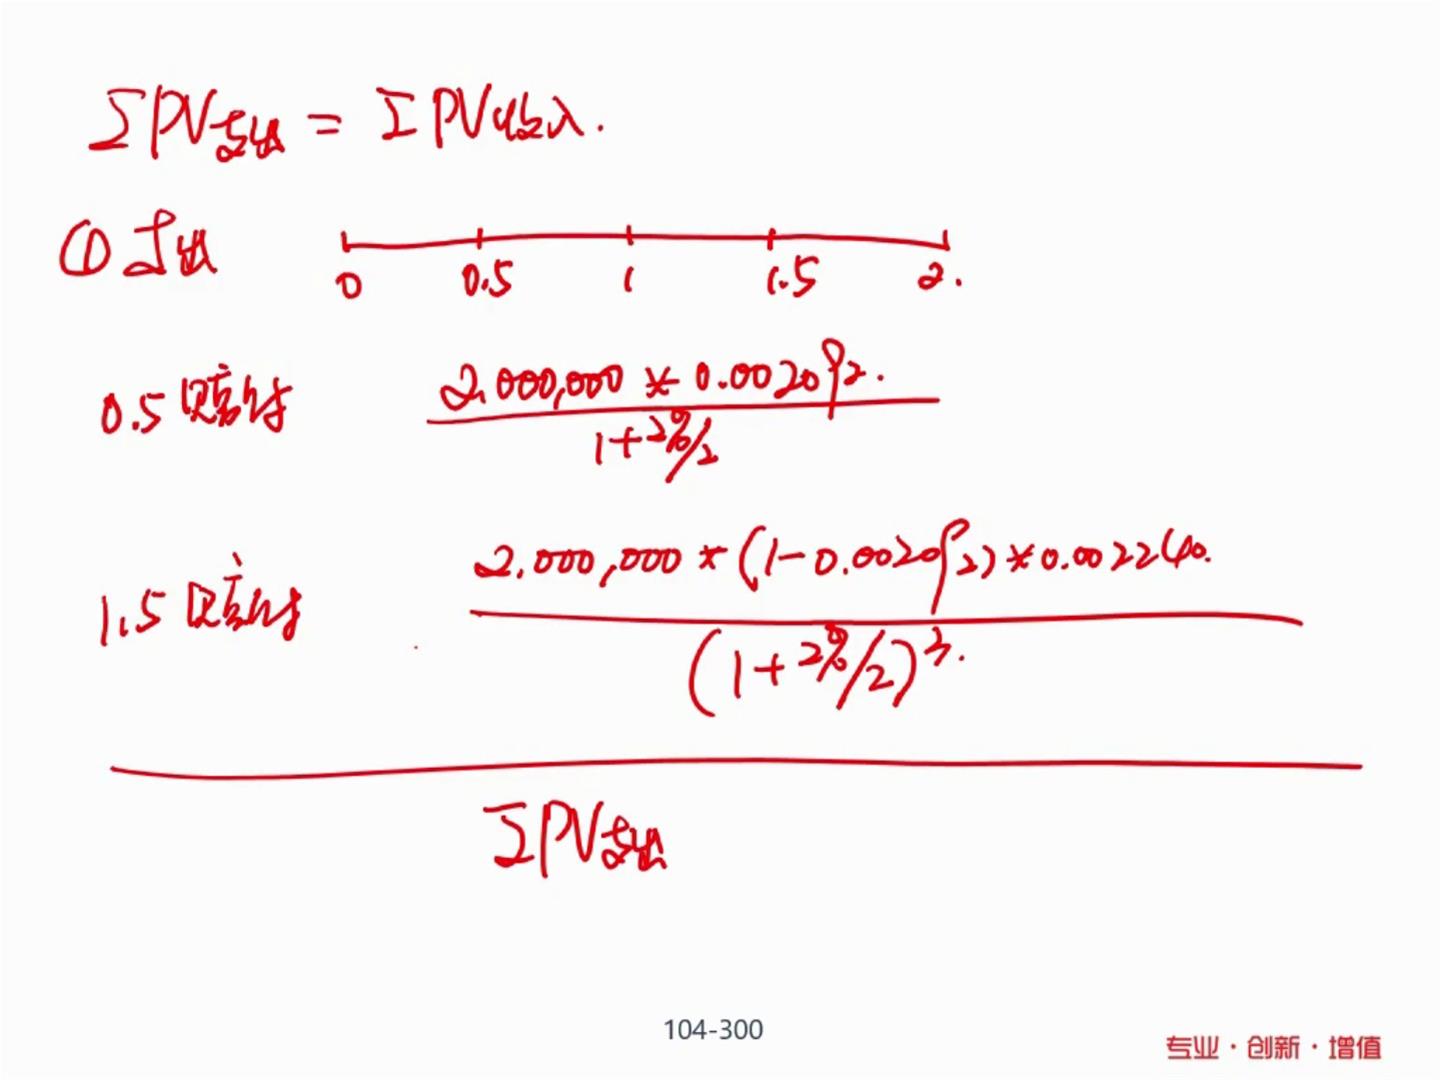 ΣPV支出 = ΣPV收入.
① 支出
0 0.5 1 1.5 2.
0.5 赔付 2,000,000 * 0.002092.
1+2%/2
1.5 赔付 2,000,000 * (1-0.002092) * 0.002240.
(1+2%/2)³.
ΣPV支出
104-300
专业·创新·增值